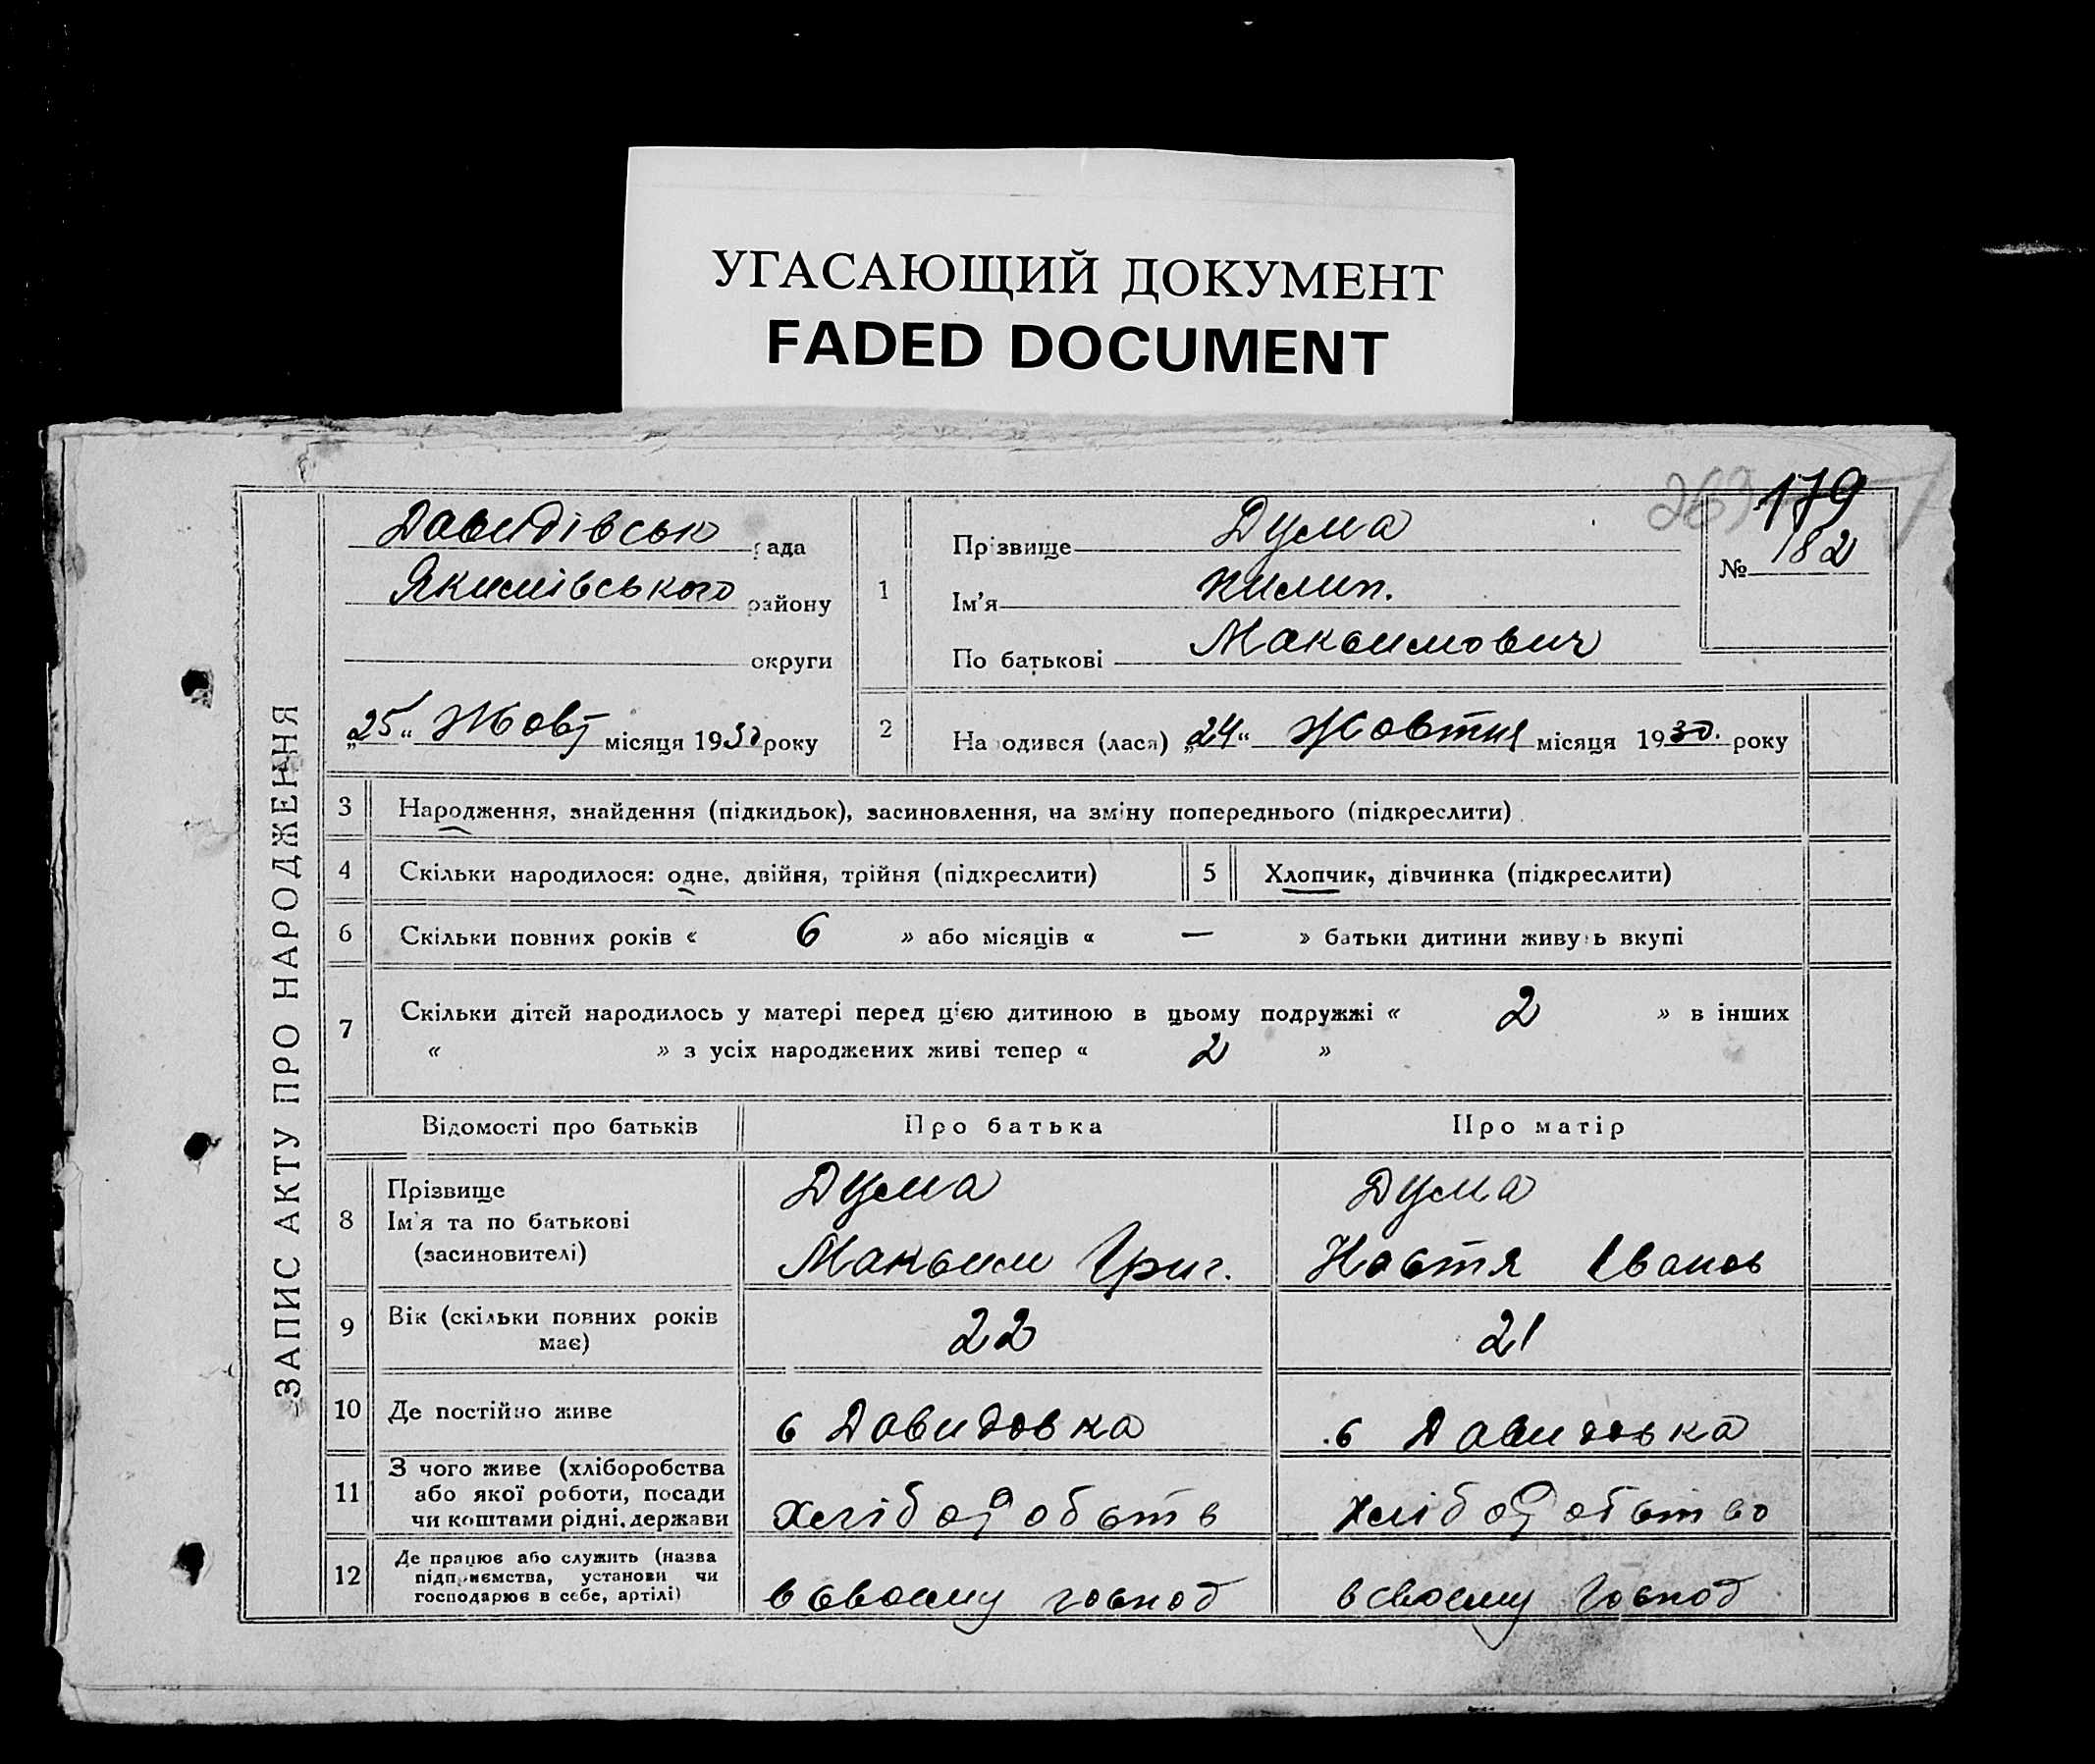 УГАСАЮЩИЙ ДОКУМЕНТ
FADED DOCUMENT
ЗАПИС АКТУ ПРО НАРОДЖЕННЯ
Давидівськ рада
Якимівського району
округи
„25“ Жовт місяця 1930 року
269 179
№ 182
1 Прізвище Дума
Ім'я Пилип.
По батькові Максимович
2 Народився (лася) „24“ Жовтня місяця 1930. року
3 Народження, знайдення (підкидьок), засиновлення, на зміну попереднього (підкреслити)
4 Скільки народилося: одне, двійня, трійня (підкреслити) 5 Хлопчик, дівчинка (підкреслити)
6 Скільки повних років « 6 » або місяців « — » батьки дитини живуть вкупі
7 Скільки дітей народилось у матері перед цією дитиною в цьому подружжі « 2 » в інших
« » з усіх народжених живі тепер « 2 »
Відомості про батьків Про батька Про матір
8 Прізвище Дума Дума
Ім'я та по батькові
(засиновителі) Максим Григ. Настя Іванов
9 Вік (скільки повних років
має) 22 21
10 Де постійно живе в Давидовка в Давидовка
11 З чого живе (хліборобства
або якої роботи, посади
чи коштами рідні, держави хліборобств хліборобство
12 Де працює або служить (назва
підприємства, установи чи
господарює в себе, артілі) в своєму господ в своєму господ